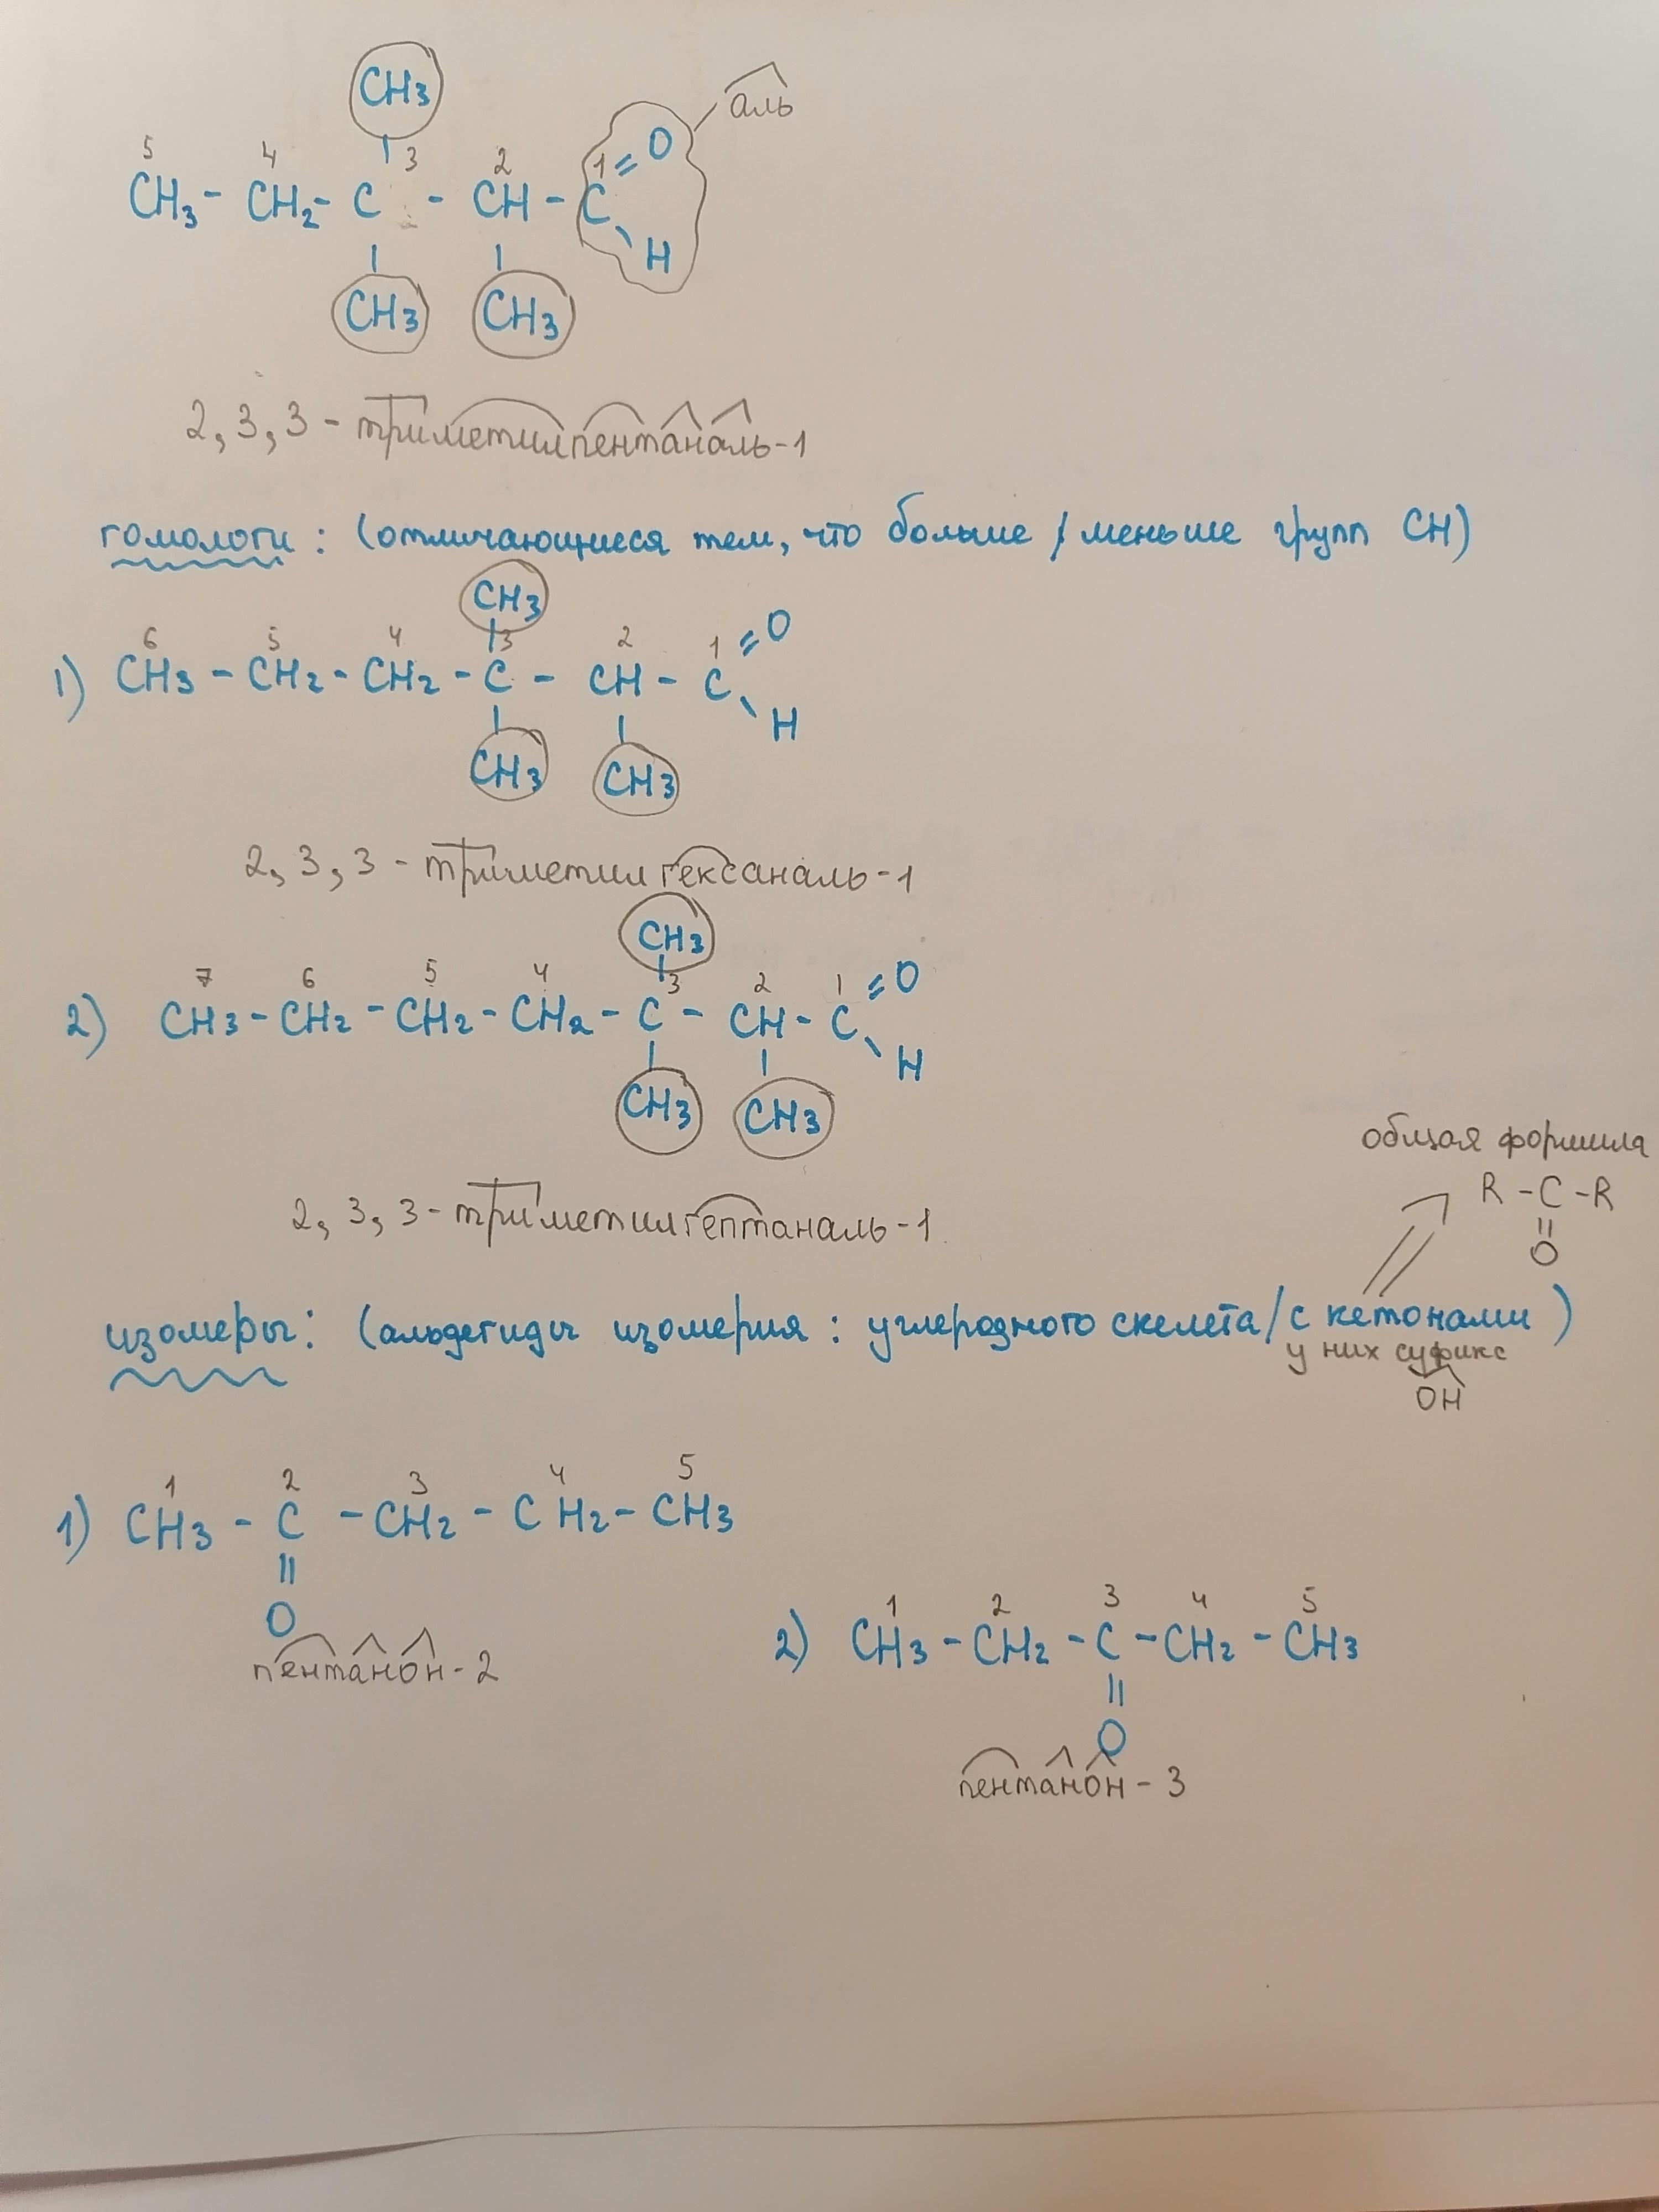 CH3
аль
5 4 3 2 1
CH3 - CH2 - C - CH - C = O
H
CH3 CH3
2, 3, 3 - триметилпентаналь-1
гомологи : (отличающиеся тем, что больше / меньше групп CH)
CH3
6 5 4 3 2 1
1) CH3 - CH2 - CH2 - C - CH - C = O
H
CH3 CH3
2, 3, 3 - триметилгексаналь-1
CH3
7 6 5 4 3 2 1
2) CH3 - CH2 - CH2 - CH2 - C - CH - C = O
H
CH3 CH3
общая формула
R - C - R
=
O
2, 3, 3 - триметилгептаналь-1
изомеры : (альдегиды изомерия : углеродного скелета / с кетонами)
у них суфикс
он
1 2 3 4 5
1) CH3 - C - CH2 - CH2 - CH3
=
O
пентанон-2
1 2 3 4 5
2) CH3 - CH2 - C - CH2 - CH3
=
O
пентанон - 3